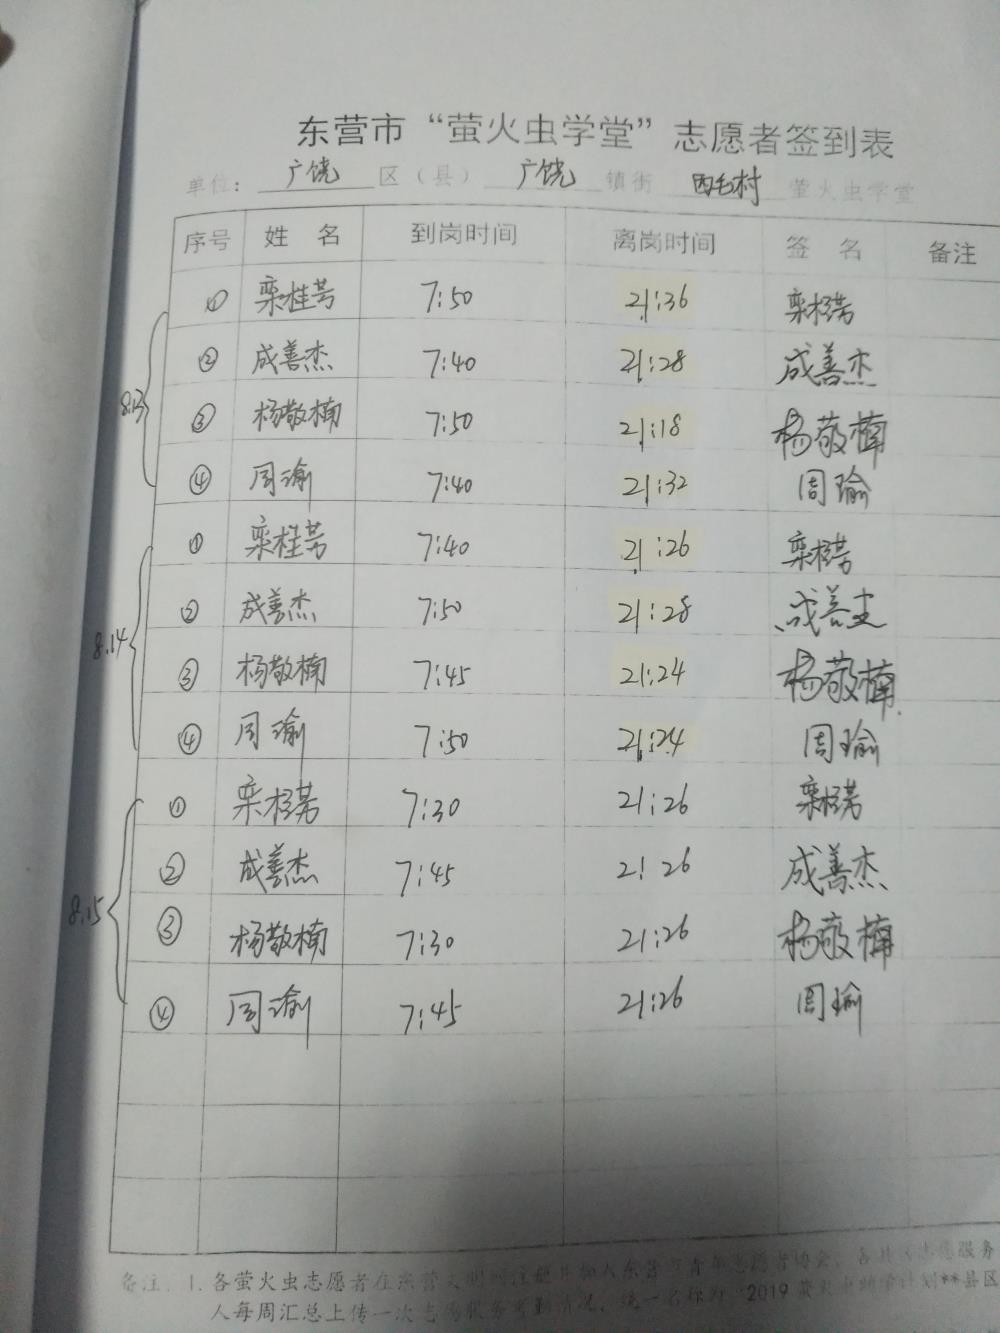 东营市“萤火虫学堂”志愿者签到表
单位：广饶区（县）广饶镇街西毛村萤火虫学堂
序号 姓名 到岗时间 离岗时间 签名 备注
8.13
① 栾桂芳 7:50 21:36 栾桂芳
② 成善杰 7:40 21:28 成善杰
③ 杨敬楠 7:50 21:18 杨敬楠
④ 周瑜 7:40 21:32 周瑜
8.14
① 栾桂芳 7:40 21:26 栾桂芳
② 成善杰 7:50 21:28 成善杰
③ 杨敬楠 7:45 21:24 杨敬楠
④ 周瑜 7:50 21:24 周瑜
8.15
① 栾桂芳 7:30 21:26 栾桂芳
② 成善杰 7:45 21:26 成善杰
③ 杨敬楠 7:30 21:26 杨敬楠
④ 周瑜 7:45 21:26 周瑜
备注：1.各萤火虫志愿者在东营 志愿服务
人每周汇总上传一次志愿服务考勤情况，统一名称为“2019萤火虫助学计划**县区